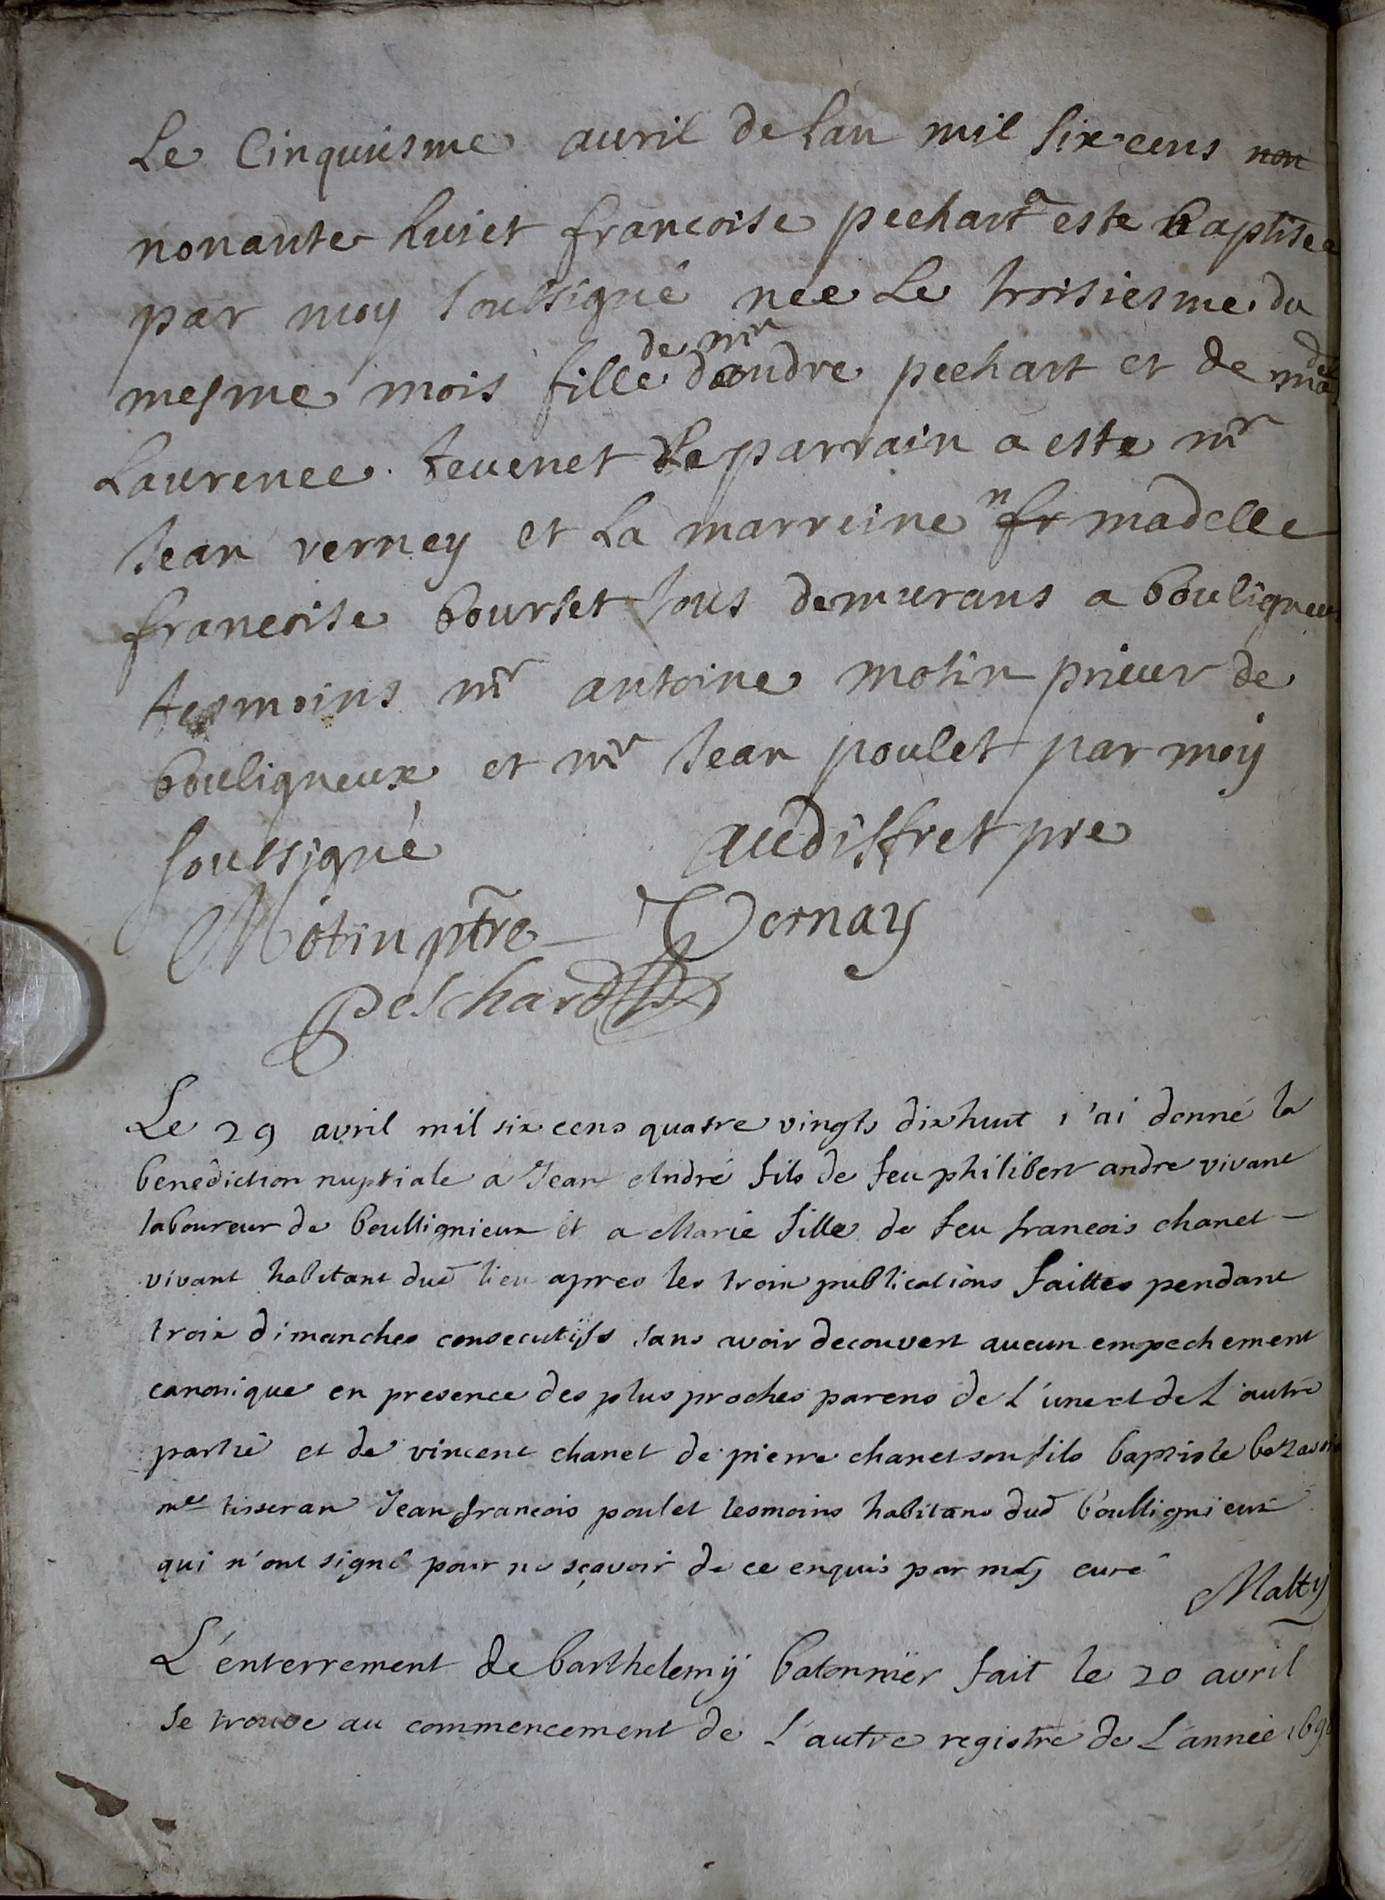 Le Cinquiesme auril de Lan mil six cens non
nonante huiet francoise pechart a este baptisee
par moy soubsigné née Le troisiesme du
mesme mois fille de mr dandre pechart et de madle
Laurence teuenet Le parrain a este mr
Jean verney et La marreine fr madelle
francoise bourset tous demurans a bouligneux
tesmoins mr antoine motin prieur de
bouligneux et mr Jean poulet par moy
soubsigné audiffret pre
Motin ptre Vernay
peschard
Le 29 avril mil six cens quatre vingts dix huit j'ai donné la
benediction nuptiale a Jean André fils de feu philibert andre vivant
laboureur de boullignieux et a Marie fille de feu francois chanet
vivant habitant dud lieu apres les troix publications faittes pendant
troix dimanches consecutifs sans avoir decouvert aucun empechement
canonique en presence des plus proches parens de l'une et de l'autre
partie et de vincent chanet de pierre chanet son fils baptiste
me tisseran Jean francois poulet tesmoins habitans dud boullignieux
qui n'ont signé pour ne sçavoir de ce enquis par moy curé
Malty
L'enterrement de barthelemÿ batonnier fait le 20 avril
se trouve au commencement de l'autre registre de L'année 169